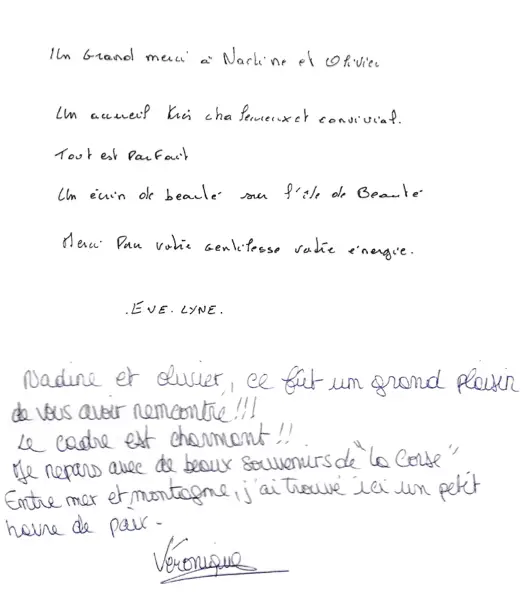 Un Grand merci à Nadine et Olivier
Un accueil très chaleureux et convivial.
Tout est Parfait
Un écrin de beauté sur l'île de Beauté
Merci Pour votre gentillesse votre énergie.
.EVE.LYNE.
Nadine et olivier, ce fût un grand plaisir
de vous avoir rencontré!!!
Le cadre est charmant!!
Je repars avec de beaux souvenirs de "la Corse"
Entre mer et montagne, j'ai trouvé ici un petit
havre de paix -
Véronique